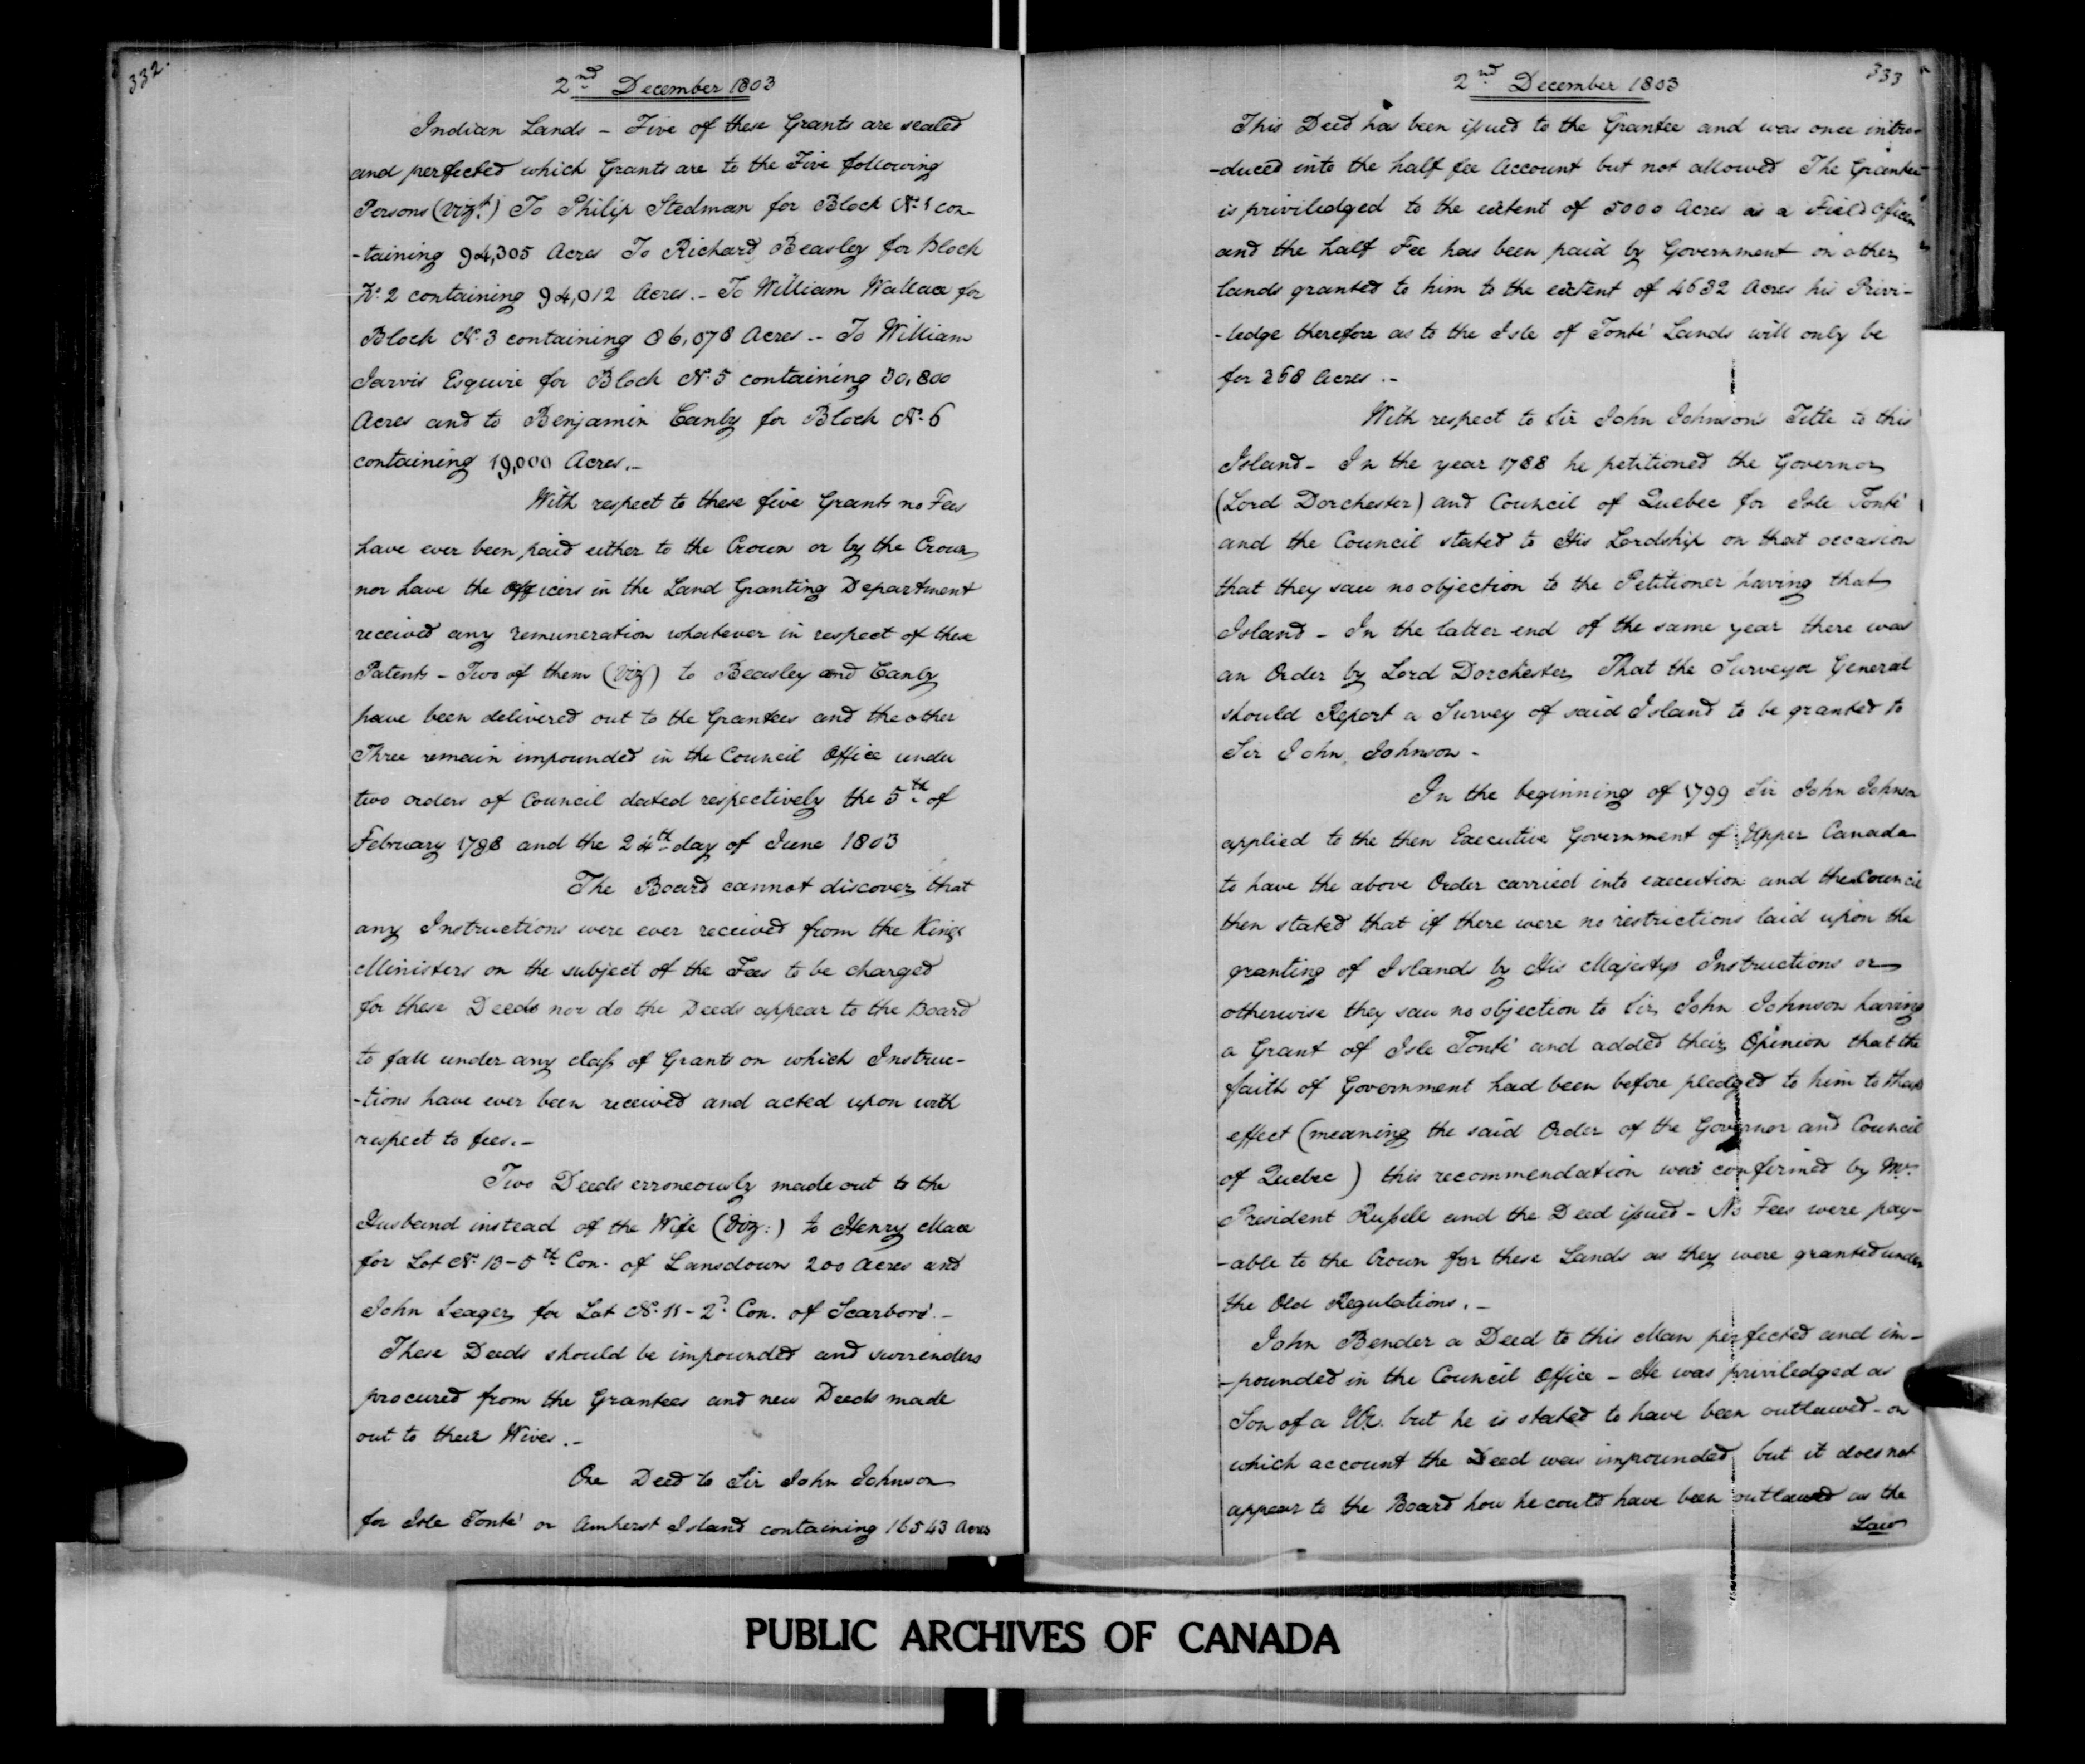 332.
2nd December 1803
Indian Lands - Five of these Grants are sealed
and perfected which Grants are to the Five following
Persons (Vizt.) To Philip Stedman for Block No. 1 con-
-taining 94,305 Acres To Richard Beasley for Block
No. 2 containing 94,012 Acres. - To William Wallace for
Block No. 3 containing 86,078 Acres - To William
Jarvis Esquire for Block No. 5 containing 30,800
Acres and to Benjamin Canby for Block No. 6
containing 19,000 Acres. -
With respect to these five Grants no Fees
have ever been paid either to the Crown or by the Crown
nor have the Officers in the Land Granting Department
received any remuneration whatever in respect of these
Patents - Two of them (Viz) to Beasley and Canby
have been delivered out to the Grantees and the other
Three remain impounded in the Council Office under
two orders of Council dated respectively the 5th of
February 1798 and the 24th day of June 1803
The Board cannot discover that
any Instructions were ever received from the Kings
Ministers on the subject of the Fees to be charged
for these Deeds nor do the Deeds appear to the Board
to fall under any class of Grants on which Instruc-
-tions have ever been received and acted upon with
respect to fees. -
Two Deeds erroneously made out to the
Husband instead of the Wife (Viz:) to Henry Mace
for Lot No. 13 - 5th Con. of Lansdown 200 Acres and
John Seager for Lot No. 11 - 2d. Con. of Scarboro'. -
These Deeds should be impounded and surrenders
procured from the Grantees and new Deeds made
out to their Wives. -
One Deed to Sir John Johnson
for Isle Tonté or Amherst Island containing 16543 Acres
333
2nd December 1803
This Deed has been issued to the Grantee and was once intro-
-duced into the half fee Account but not allowed The Grantee
is priviledged to the extent of 5000 Acres as a Field Officer
and the half Fee has been paid by Government on other
lands granted to him to the extent of 4632 Acres his Privi-
-ledge therefore as to the Isle of Tonté Lands will only be
for 368 Acres. -
With respect to Sir John Johnson's Title to this
Island - In the year 1788 he petitioned the Governor
(Lord Dorchester) and Council of Quebec for Isle Tonté
and the Council stated to His Lordship on that occasion
that they saw no objection to the Petitioner having that
Island - In the latter end of the same year there was
an Order by Lord Dorchester That the Surveyor General
should Report a Survey of said Island to be granted to
Sir John Johnson -
In the beginning of 1799 Sir John Johnson
applied to the then Executive Government of Upper Canada
to have the above Order carried into execution and the Council
then stated that if there were no restrictions laid upon the
granting of Islands by His Majestys Instructions or
otherwise they saw no objection to Sir John Johnson having
a Grant of Isle Tonté and added their Opinion that the
faith of Government had been before pledged to him to that
effect (meaning the said Order of the Governor and Council
of Quebec) this recommendation was confirmed by Mr.
President Russell and the Deed issued - No Fees were pay-
-able to the Crown for these Lands as they were granted under
the Old Regulations. -
John Bender a Deed to this Man perfected and im-
-pounded in the Council Office - He was priviledged as
Son of a UE. but he is stated to have been outlawed - on
which account the Deed was impounded but it does not
appear to the Board how he could have been outlawed as the
Law
PUBLIC ARCHIVES OF CANADA